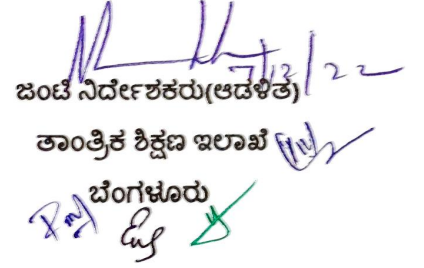 7/12/22
ಜಂಟಿ ನಿರ್ದೇಶಕರು(ಆಡಳಿತ)
ತಾಂತ್ರಿಕ ಶಿಕ್ಷಣ ಇಲಾಖೆ
ಬೆಂಗಳೂರು